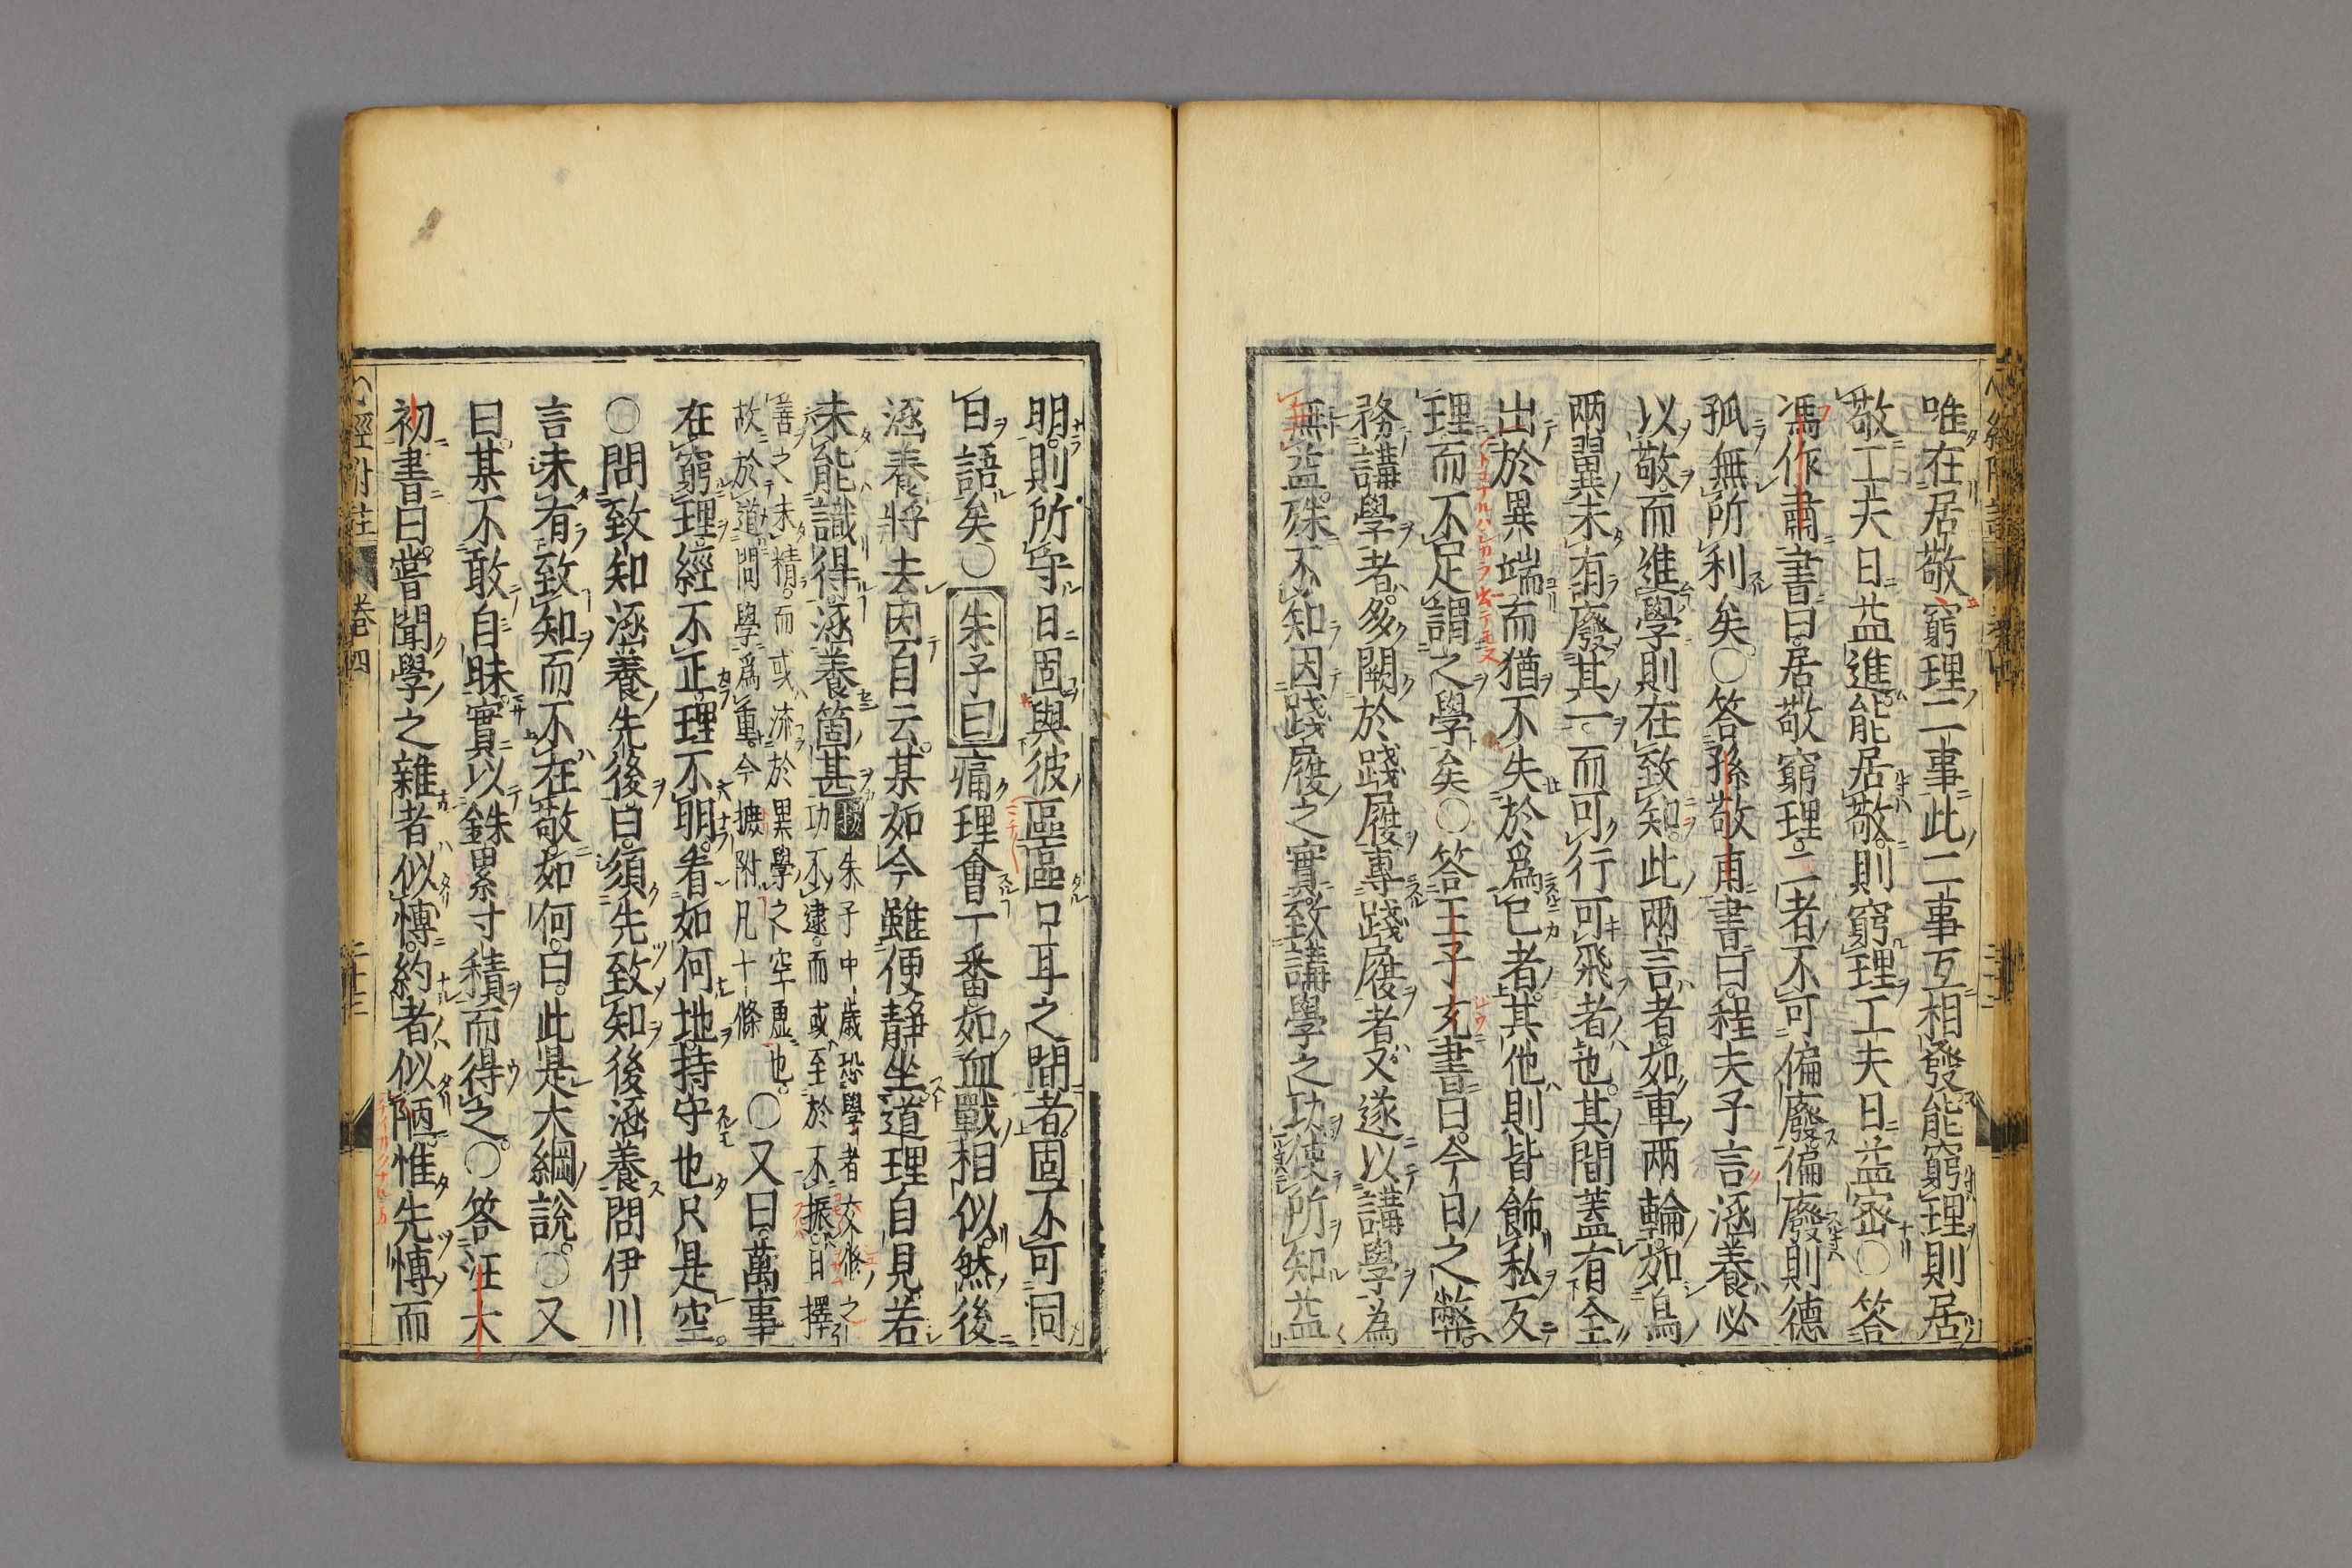 唯在居敬窮理二事此二事互相發能窮理則居
敬工夫日益進能居敬則窮理工夫日益密○答
馮作肅書曰居敬窮理二者不可偏廢偏廢則德
孤無所利矣○答孫敬甫書曰程夫子言涵養必
以敬而進學則在致知此兩言者如車兩輪如鳥
兩翼未有廢其一而可行可飛者也其間蓋有全
出於異端而猶不失於爲己者其他則皆飾私反
理而不足謂之學矣○答王子充書曰今日之弊
務講學者多闕於踐履專踐履者又遂以講學為
無益殊不知因踐履之實致講學之功使所知益
明則所守日固與彼區區口耳之間者固不可同
日語矣○朱子曰痛理會一番如血戰相似然後
涵養將去因自云某如今雖便靜坐道理自見若
未能識得涵養箇甚
朱子中歲恐學者交脩之
功不逮而或至於不振日擇
善之未精而或流於異學之空虛也
故於道問學爲重今摭附凡十條
○又曰萬事
在窮理經不正理不明看如何地持守也只是空
○問致知涵養先後曰須先致知後涵養問伊川
言未有致知而不在敬如何曰此是大綱說○又
曰某不敢自昧實以銖累寸積而得之○答汪太
初書曰嘗聞學之雜者似博約者似陋惟先博而
心經附註 卷四 二十三